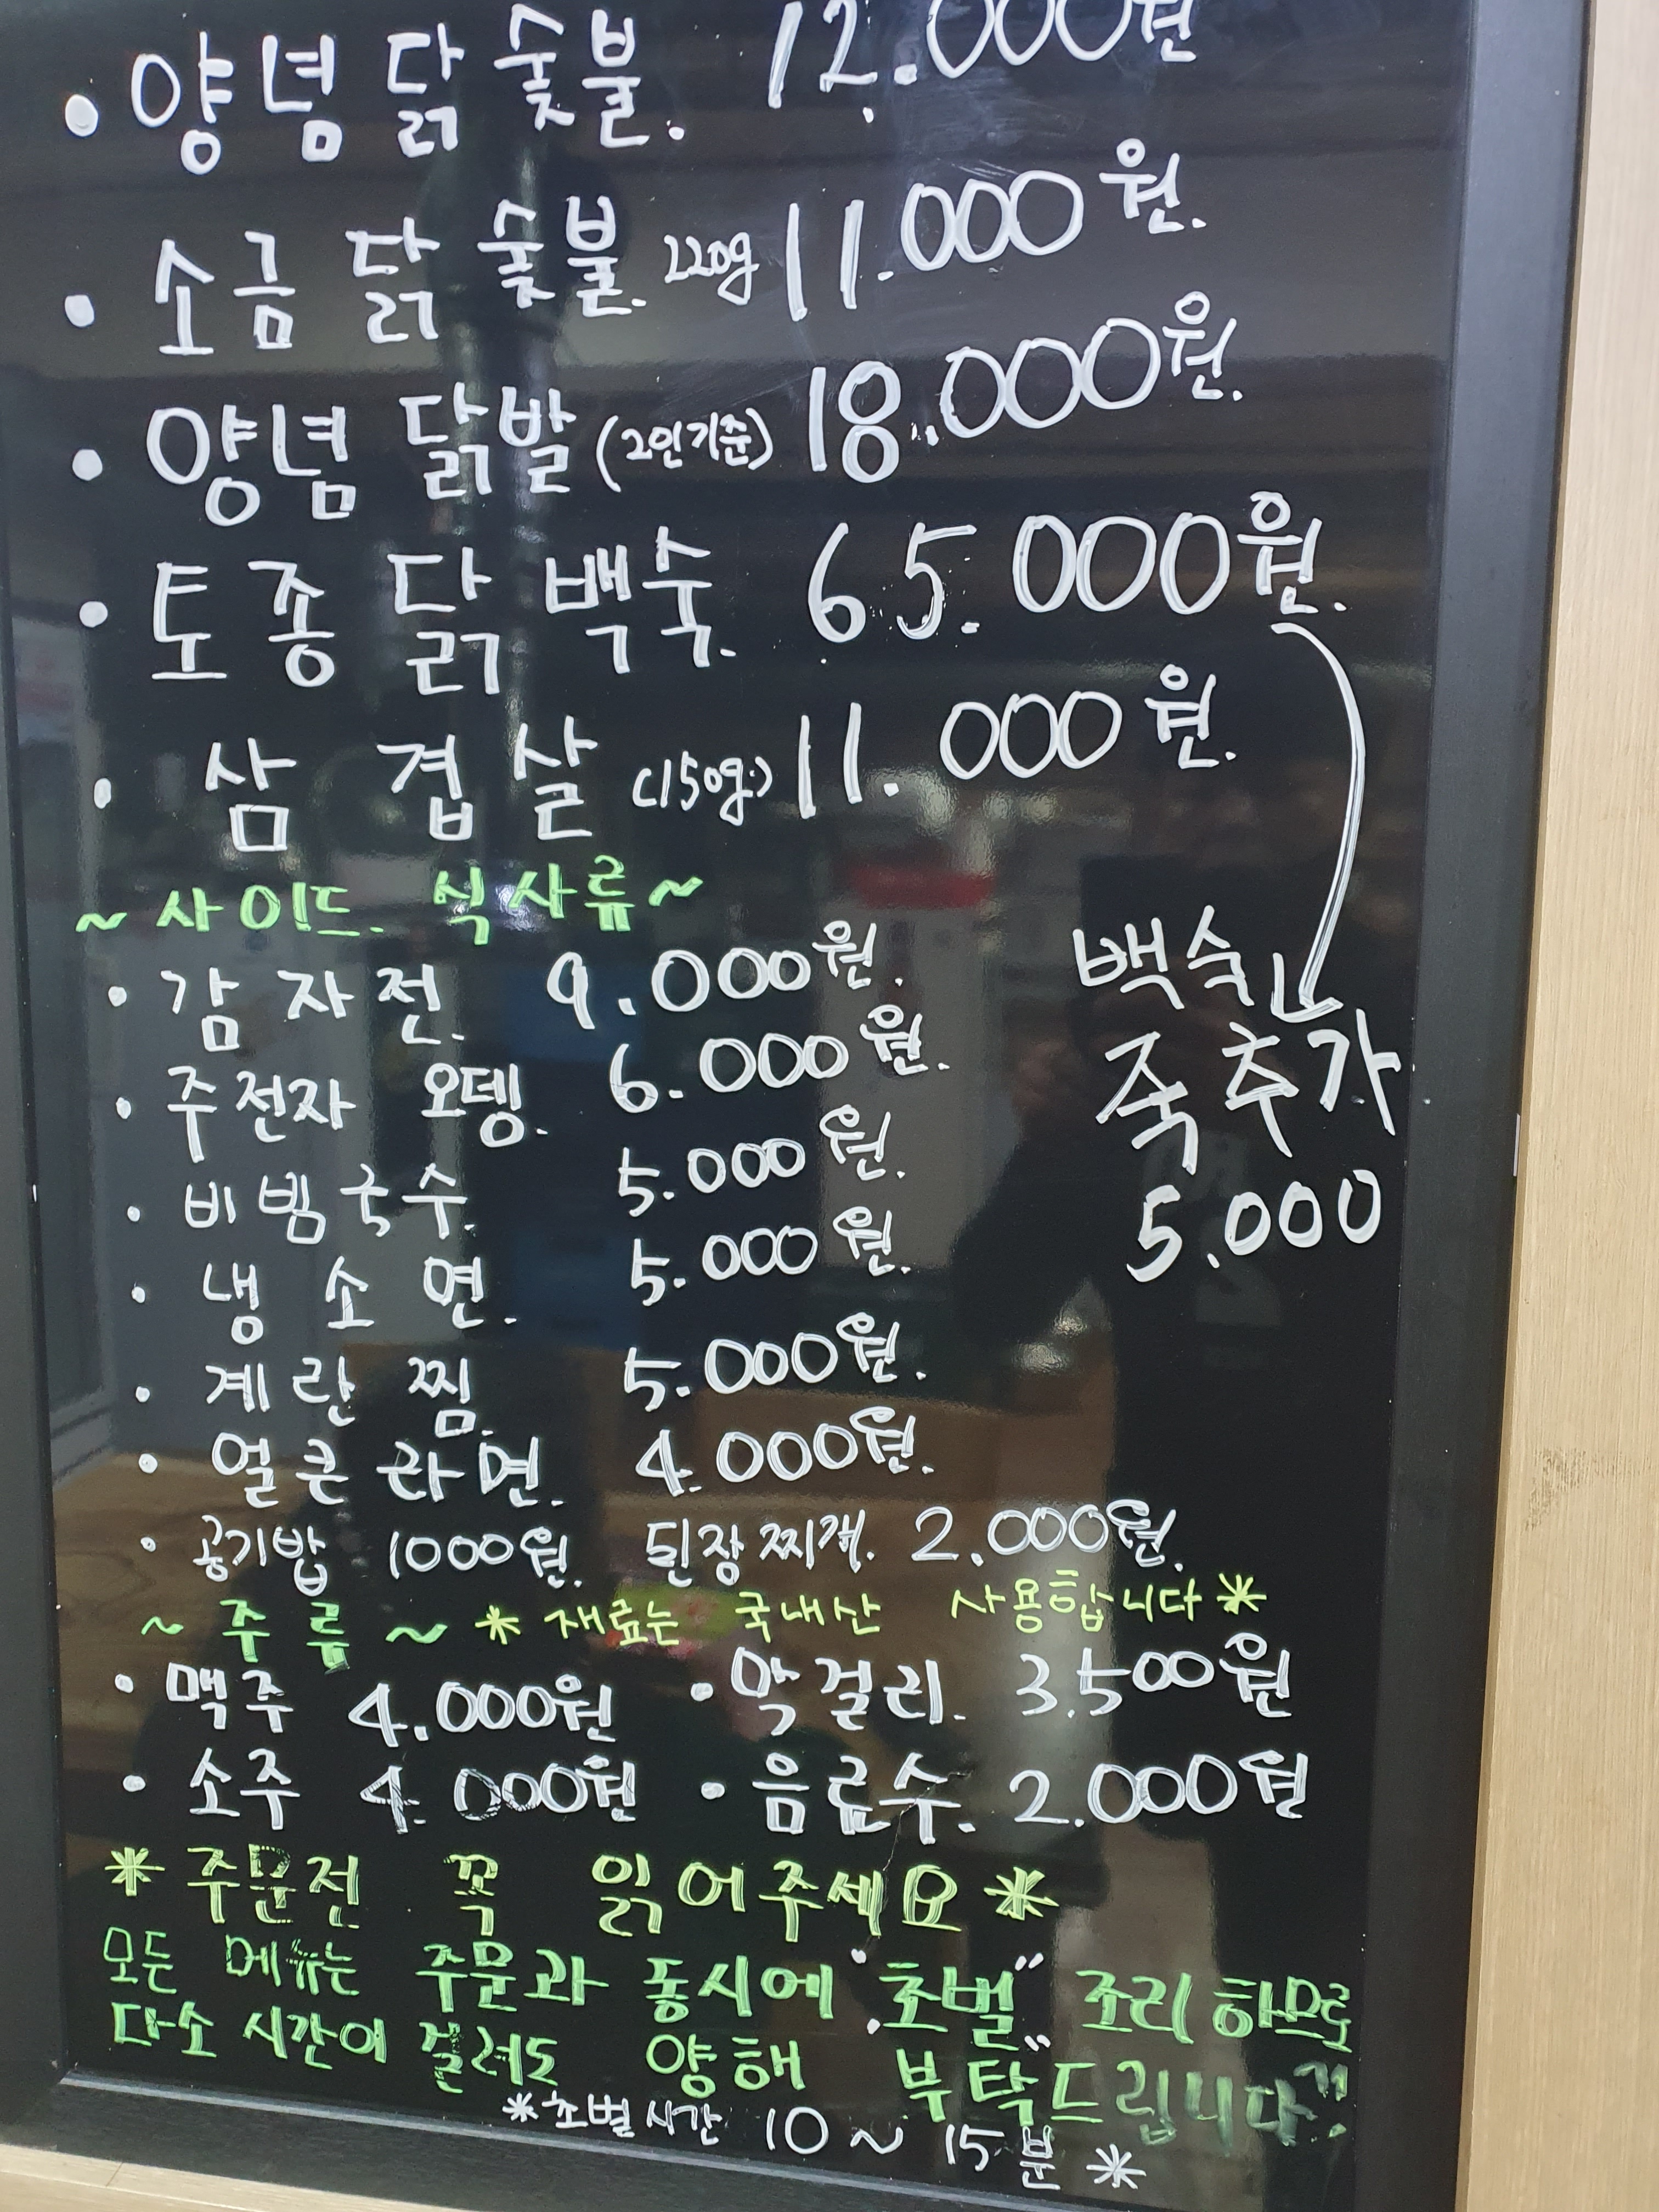 • 양념 닭 숯불. 12.000원
• 소금 닭 숯불. 220g 11.000원.
• 양념 닭발 (2인기준) 18.000원.
• 토종 닭 백숙. 65.000원.
• 삼 겹 살 (150g) 11.000원.
~ 사이드. 식사류 ~
• 감자전. 9.000원.
• 주전자 오뎅. 6.000원.
• 비빔국수. 5.000원.
• 냉 소 면. 5.000원.
• 계 란 찜. 5.000원.
• 얼큰 라면. 4.000원.
• 공기밥 1000원. 된장찌개. 2.000원.
백숙
죽추가
5.000
~ 주 류 ~ * 재료는 국내산 사용합니다 *
• 맥주 4.000원 • 막걸리. 3.500원
• 소주 4.000원 • 음료수. 2.000원
* 주문전 꼭 읽어주세요 *
모든 메뉴는 주문과 동시에 "초벌" 조리하므로
다소 시간이 걸려도 양해 부탁드립니다
*초벌시간 10 ~ 15분 *